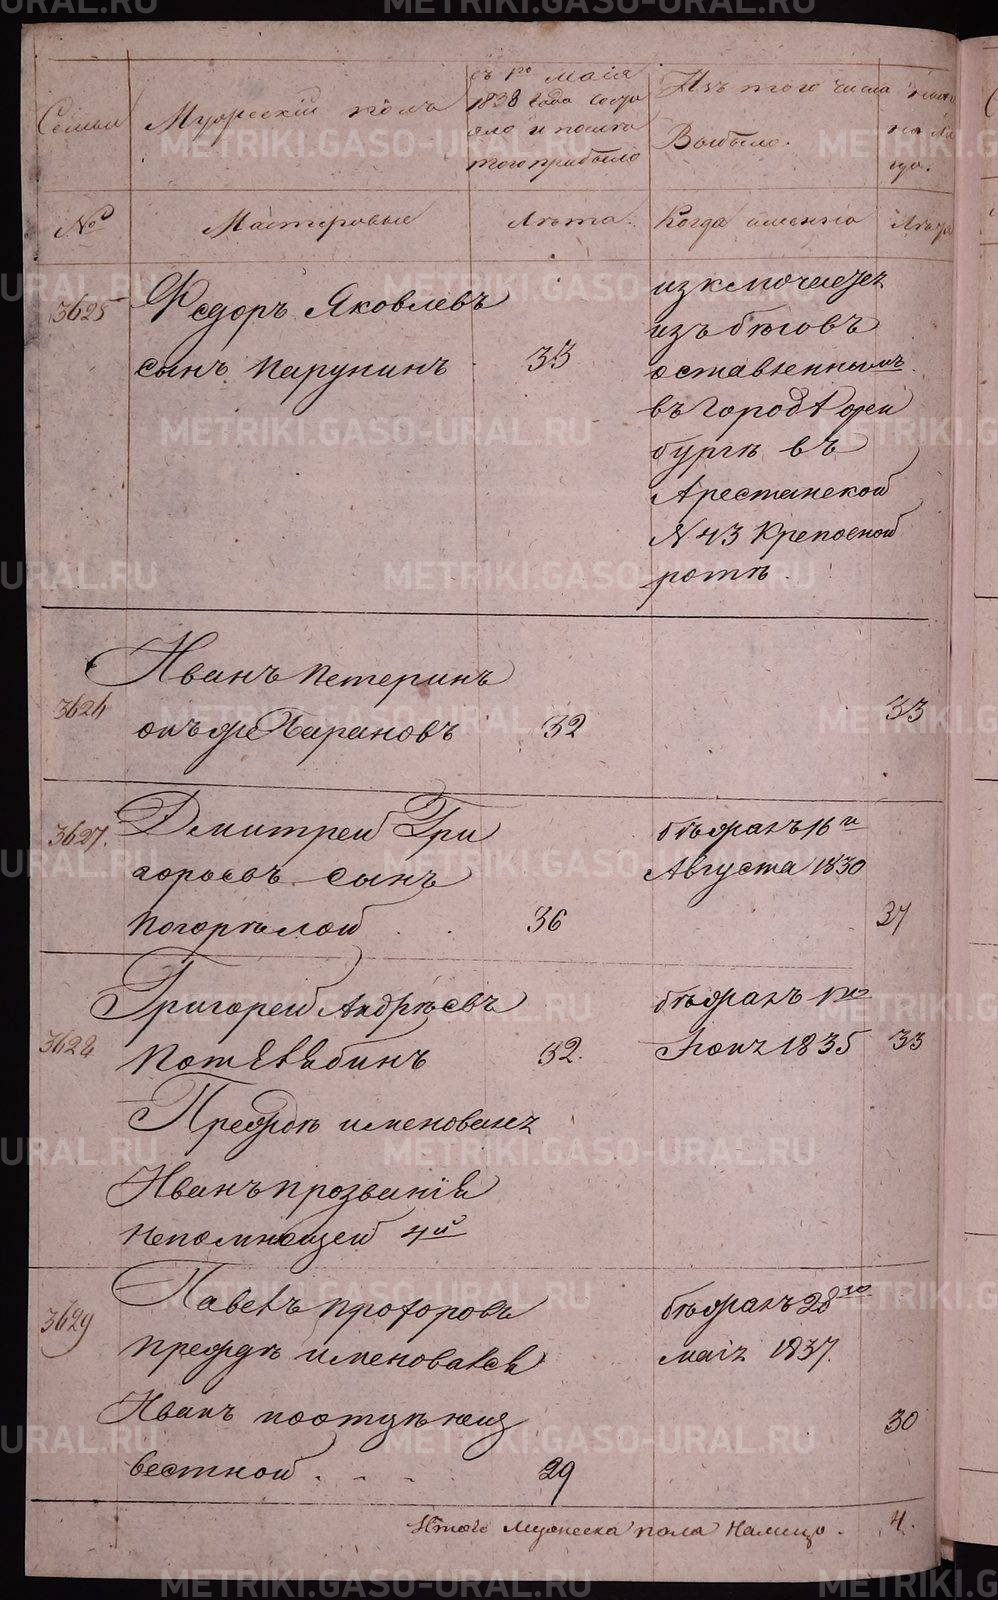 Семьи
Мужескій полъ
съ 1го маія
1828 года состо
яло и после
того прибыло
Изъ того числа
Выбыло.
на ли
цо.
№
Мастеровые
Лѣта.
Когда именно
Лѣта
3625
Федоръ Яковлевъ
сынъ Парунинъ
35
изключает
изъ бѣговъ
оставленнымъ
въ городѣ Орен
бургѣ въ
Арестанской
N 43 Крепосной
ротѣ.
Иванъ Петеринъ
онъ же Тарановъ
32
33
3627.
Дмитрей Гри
горьевъ сынъ
Погорѣлой . .
36
бѣжалъ 16и
Августа 1830
37
3628
Григорей Андрѣевъ
32.
бѣжалъ 1го
1835
33
Прежде именованъ
Иванъ прозванія
непомнющей 4й
3629
Павелъ Прохоровъ
прежде именовался
Иванъ поотцѣ неиз
вестной . - - .
29
бѣжалъ 28го
маія 1837.
30
Итого мужеска пола налицо.
4.
METRIKI.GASO-URAL.RU